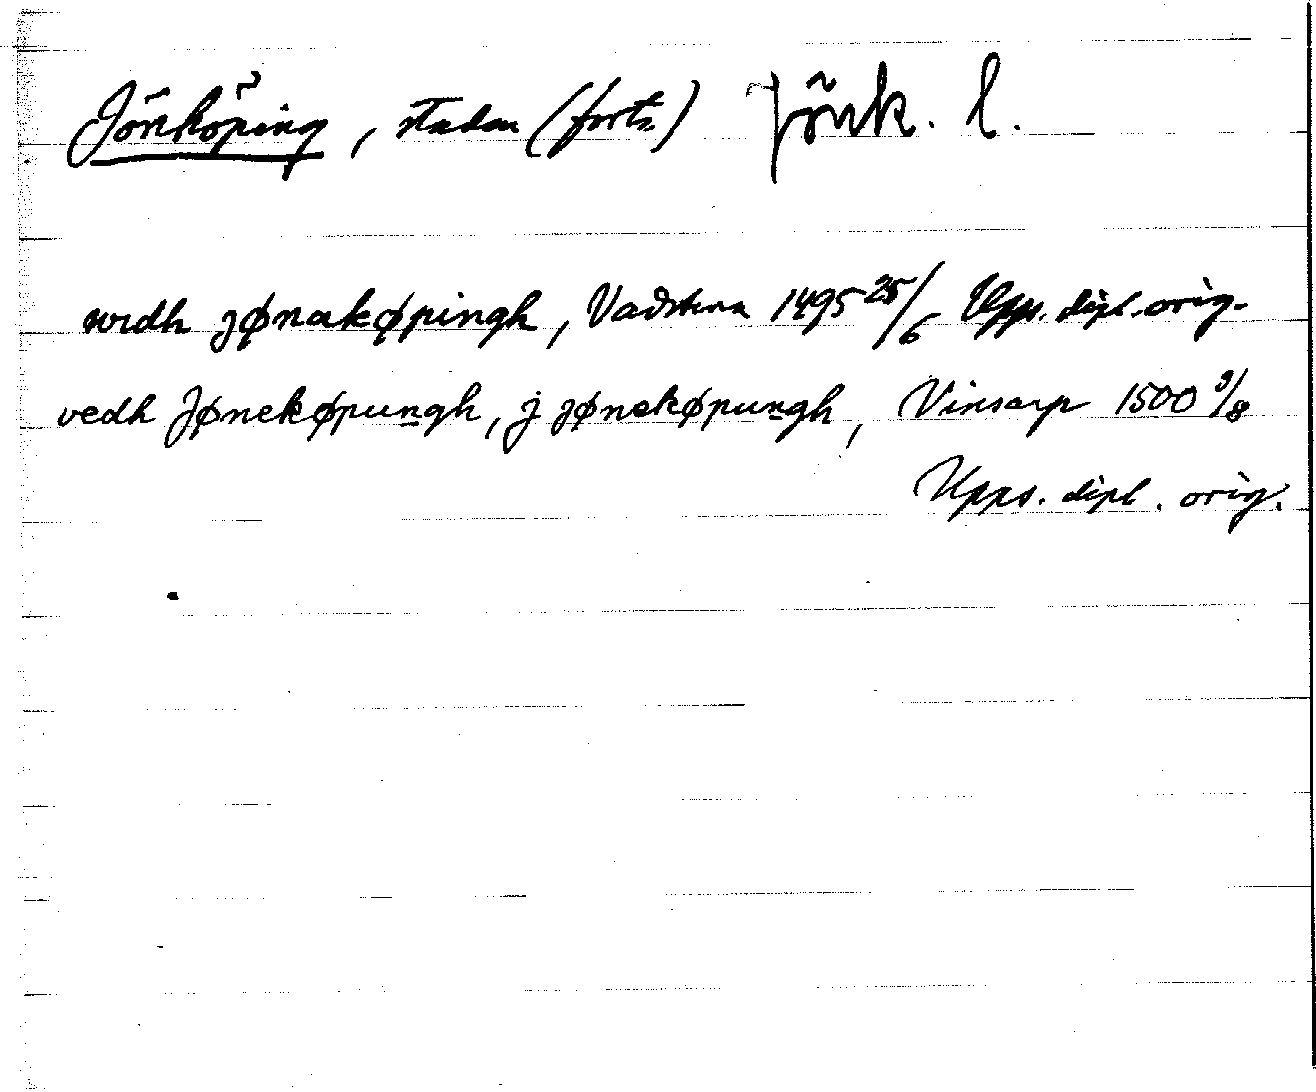 Jönköping, staden (forts.) Jönk. l.
widh jønakøpingh, Vadstena 1495 25/6 Upps. dipl. orig.
vedh Jønekøpungh, j jønekøpungh, Vinsarp 1500 9/8
Upps. dipl. orig.